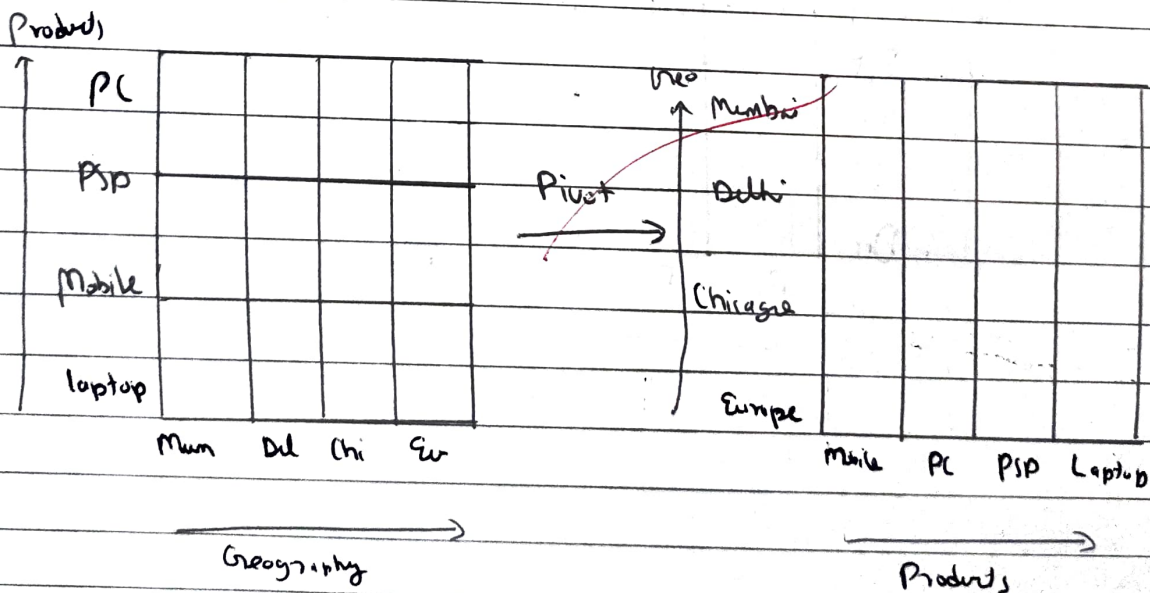 Products
PC
PSP
Mobile
laptop
Mum Del Chi Eu
Geography
Pivot
Geo
Mumbai
Delhi
Chicago
Europe
Mobile PC PSP Laptop
Products